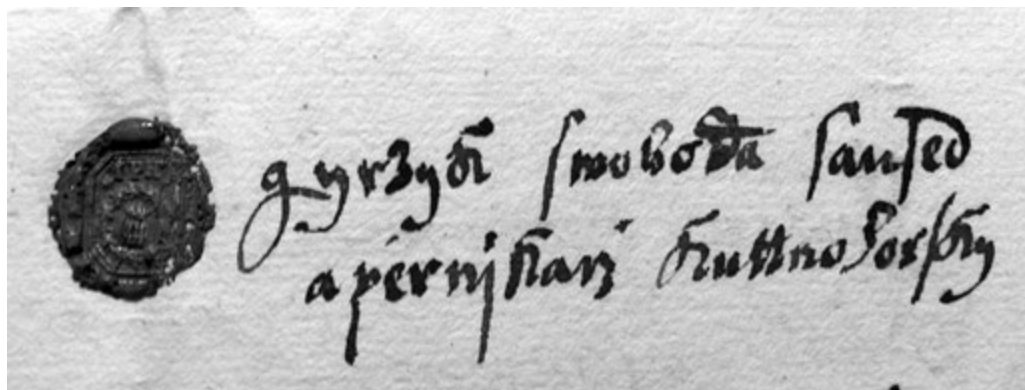 gyrzyk swoboda saused
a pernjkarz kuttnohorsky